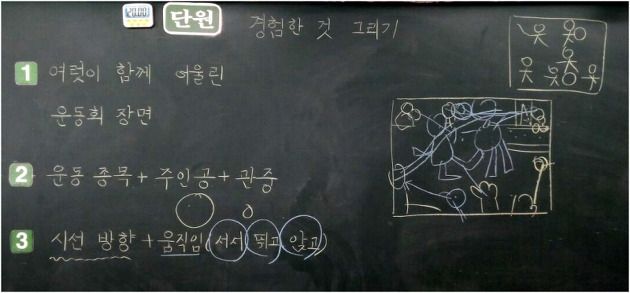 단원 경험한 것 그리기
1 여럿이 함께 어울린
운동회 장면
2 운동 종목 + 주인공 + 관중
3 시선 방향 + 움직임(서서 뛰고 앉고)